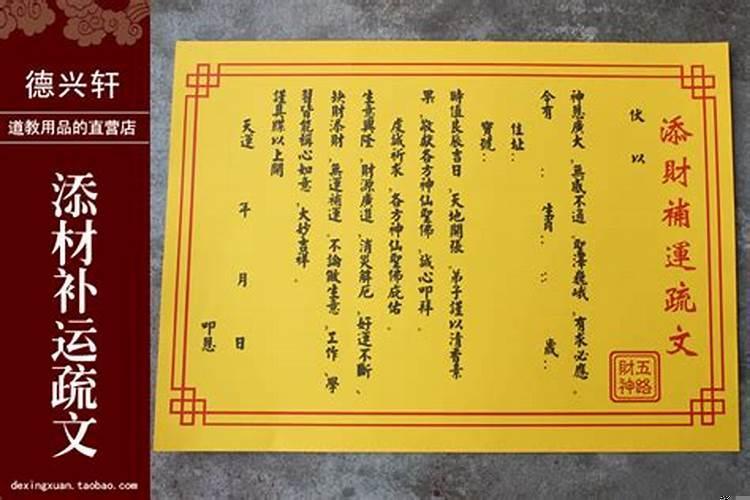 德兴轩
道教用品的直营店
添材补运疏文
dexingxuan.taobao.com
添財補運疏文
五路
財神
伏以
神恩廣大,無感不通,聖澤巍峨,有求必應。
今有:生肖::歲:
住址:
寶號:
時值良辰吉日,天地開張,弟子謹以清香素
果,敬獻各方神仙聖佛,誠心叩拜。
虔誠祈求,各方神仙聖佛庇佑。
生意興隆,財源廣進,消災解厄,好運不斷、
缺財添財,無運補運,不論做生意,工作,學
習皆能稱心如意,大妙吉祥。
謹具牒以上聞
天運 年 月 日
叩恩